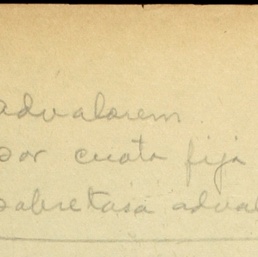 advalorem
por cuota fija
sobretasa adval